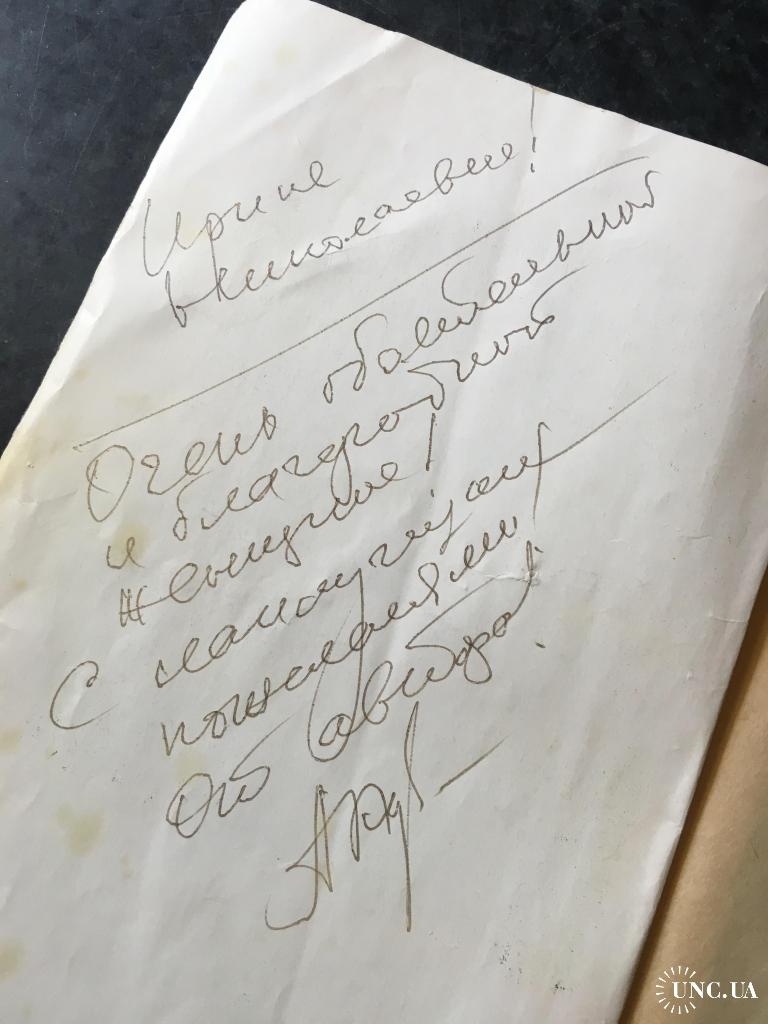 Ирине
Николаевне!
Очень обаятельной
и благородной
женщине!
С наилучшими
пожеланиями
От автора!
UNC.UA